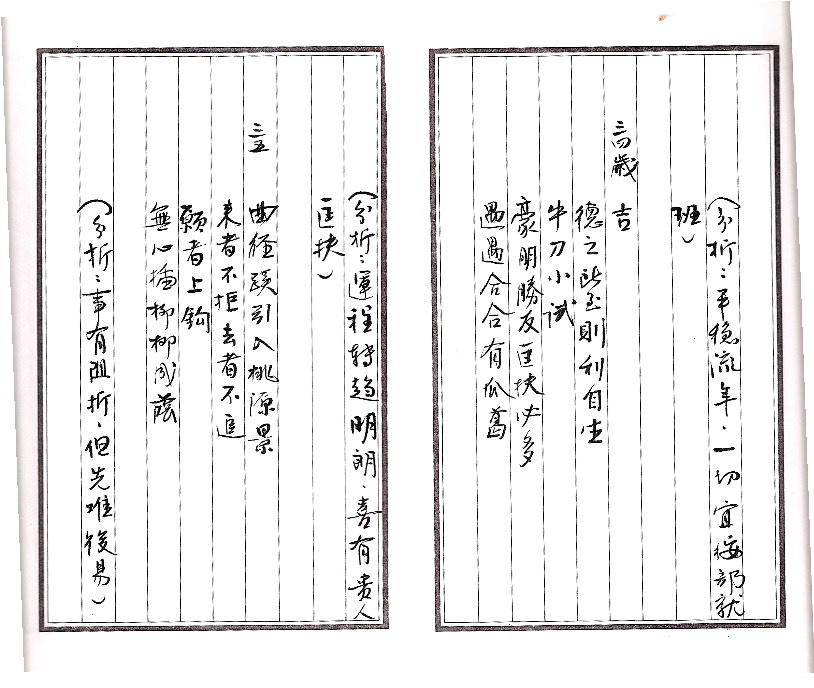 （分析：平穩流年．一切宜按部就
班）
三四歲 吉
德之所至則利自生
牛刀小試
豪明勝友匡扶必多
遇遇合合有瓜葛
（分析：運程轉趨明朗．喜有貴人
匡扶）
三五
曲徑蹊引入桃源景
來者不拒去者不追
願者上鈎
無心插柳柳成蔭
（分析：事有阻折．但先难後易）